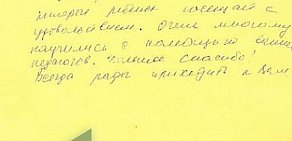 ребёнок посещает с
удовольствием. Очень многому
научились с помощью
педагогов. Большое спасибо!
Всегда рады приходить к Вам